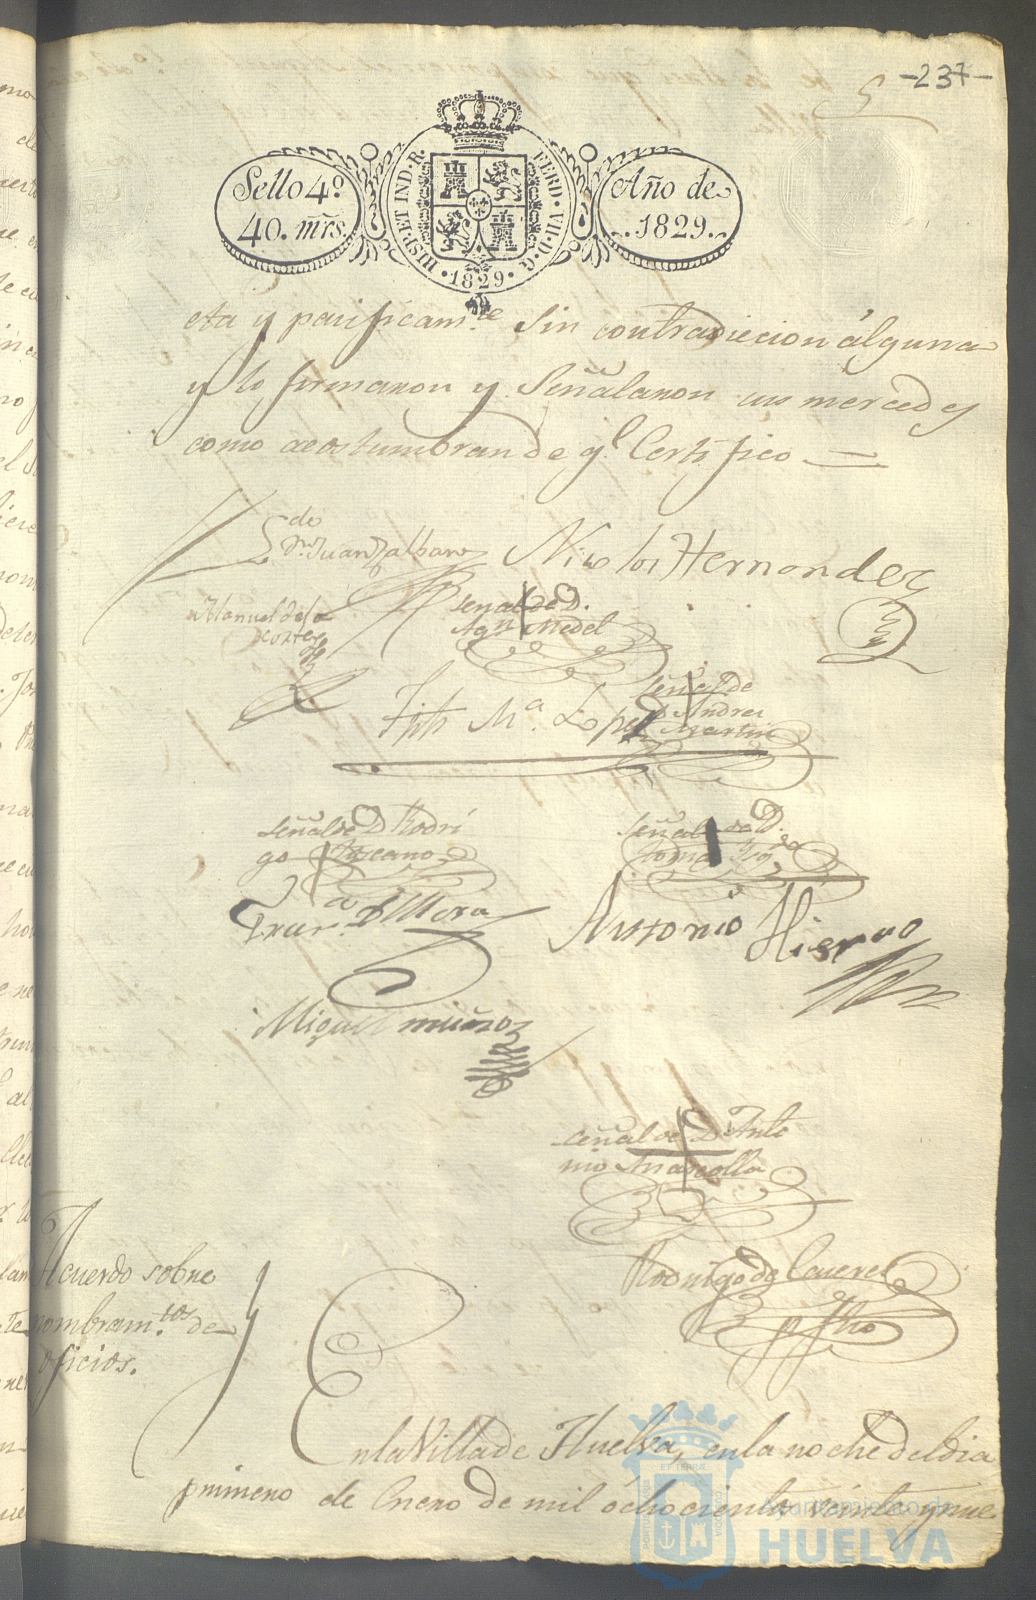 -237-
Sello 4º
40. mrs.
HISP. ET IND. R.
FERD. VII. D. G.
1829
Año de
1829.
eta y pacificam.te Sin contradiccion álguna
y lo firmaron y Señalaron sus mercedes
como acostumbran de q.e Certifico =
Nicolos Hernandez
Manuel de la
Cortes
Señal de D.
Ag.n Medel
Señal de
Andres
Martin
M.a Lopez
Señal de D Rodri
go Toscano
Señal de D.
Mora
Antonio Hierro
Miguel muñoz
Señal de D. Anto
nio
Rodrigo de
Acuerdo sobre
nombram.tos de
oficios.
En la Villa de Huelva, en la noche del dia
primero de Enero de mil óchocientos veinte y nue
Ayuntamiento de
HUELVA